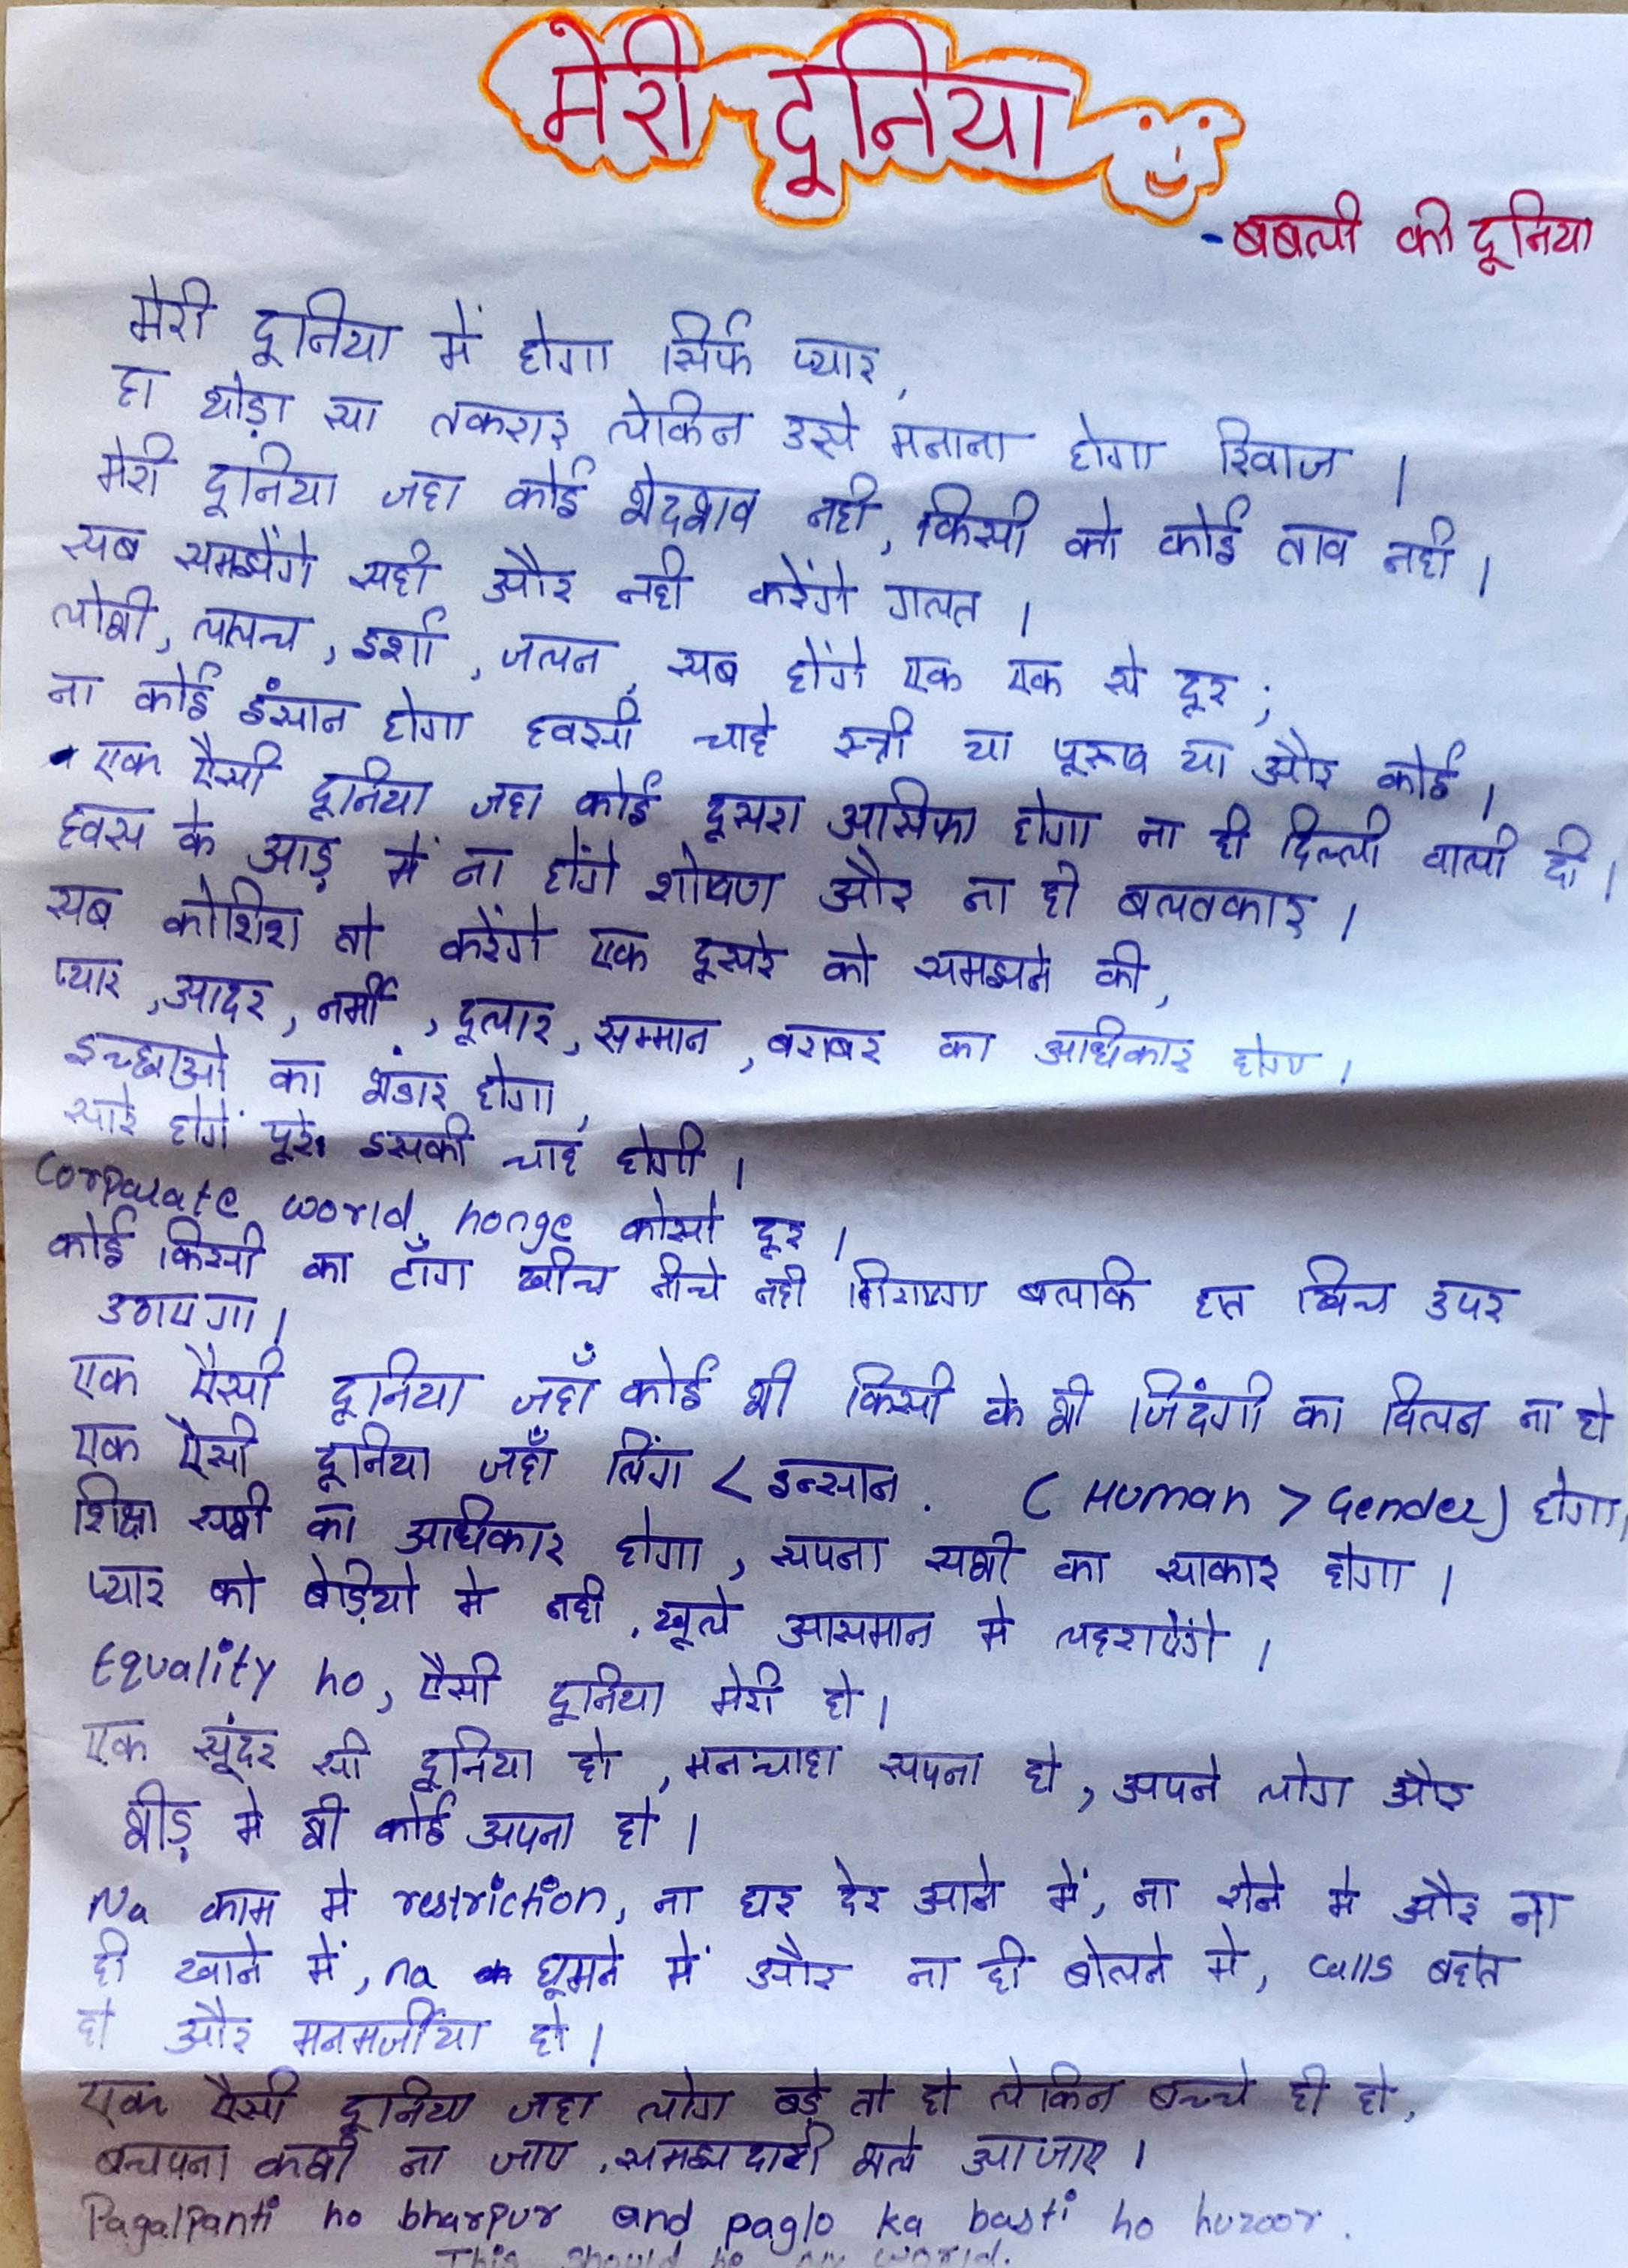 मेरी दूनिया
-बबली की दूनिया
मेरी दूनिया में होगा सिर्फ प्यार,
हा थोड़ा सा तकरार लेकिन उसे मनाना होगा रिवाज ।
मेरी दूनिया जहा कोई भेदभाव नही, किसी को कोई ताव नही ।
सब समझेंगे सही और नही करेंगे गलत ।
लोभी, लालच, इर्शा, जलन, सब होंगे एक एक से दूर ;
ना कोई इंसान होगा हवसी चाहे स्त्री या पूरूष या और कोई ।
एक ऐसी दूनिया जहा कोई दूसरा आसिफा होगा ना ही दिल्ली वाली दी ।
हवस के आड़ में ना होंगे शोषण और ना ही बलतकार ।
सब कोशिश तो करेंगे एक दूसरे को समझने की,
प्यार, आदर, नर्मी, दूलार, सम्मान, बराबर का अधिकार होगा ।
इच्छाओ का भंडार होगा,
सारे होगें पूरे इसकी चाह होगी ।
Corparate world honge कोसो दूर ।
कोई किसी का टाँग खीच नीचे नही गिराएगा बलकि हात खिच उपर
उठाएगा ।
एक ऐसी दूनिया जहाँ कोई भी किसी के भी जिंदगी का विलन ना हो
एक ऐसी दूनिया जहाँ लिंग < इन्सान . (Human > Gender) होगा ।
शिक्षा सभी का अधिकार होगा, सपना सभी का साकार होगा ।
प्यार को बेड़ियो मे नही, खूले आसमान मे लहराऐंगे ।
Equality ho, ऐसी दूनिया मेरी हो ।
एक सूंदर सी दूनिया हो, मनचाहा सपना हो, अपने लोग और
भीड़ मे भी कोई अपना हो ।
Na काम मे restriction, ना घर देर आने में, ना रोने मे और ना
ही खाने में, na घूमने में और ना ही बोलने मे, calls बहोत
हो और मनमर्जीया हो ।
एक ऐसी दूनिया जहा लोग बड़े तो हो लेकिन बच्चे ही हो,
बचपना कभी ना जाए, समझदारी भले आ जाए ।
Pagalpanti ho bharpur and paglo ka basti ho huzoor.
This should be my world.